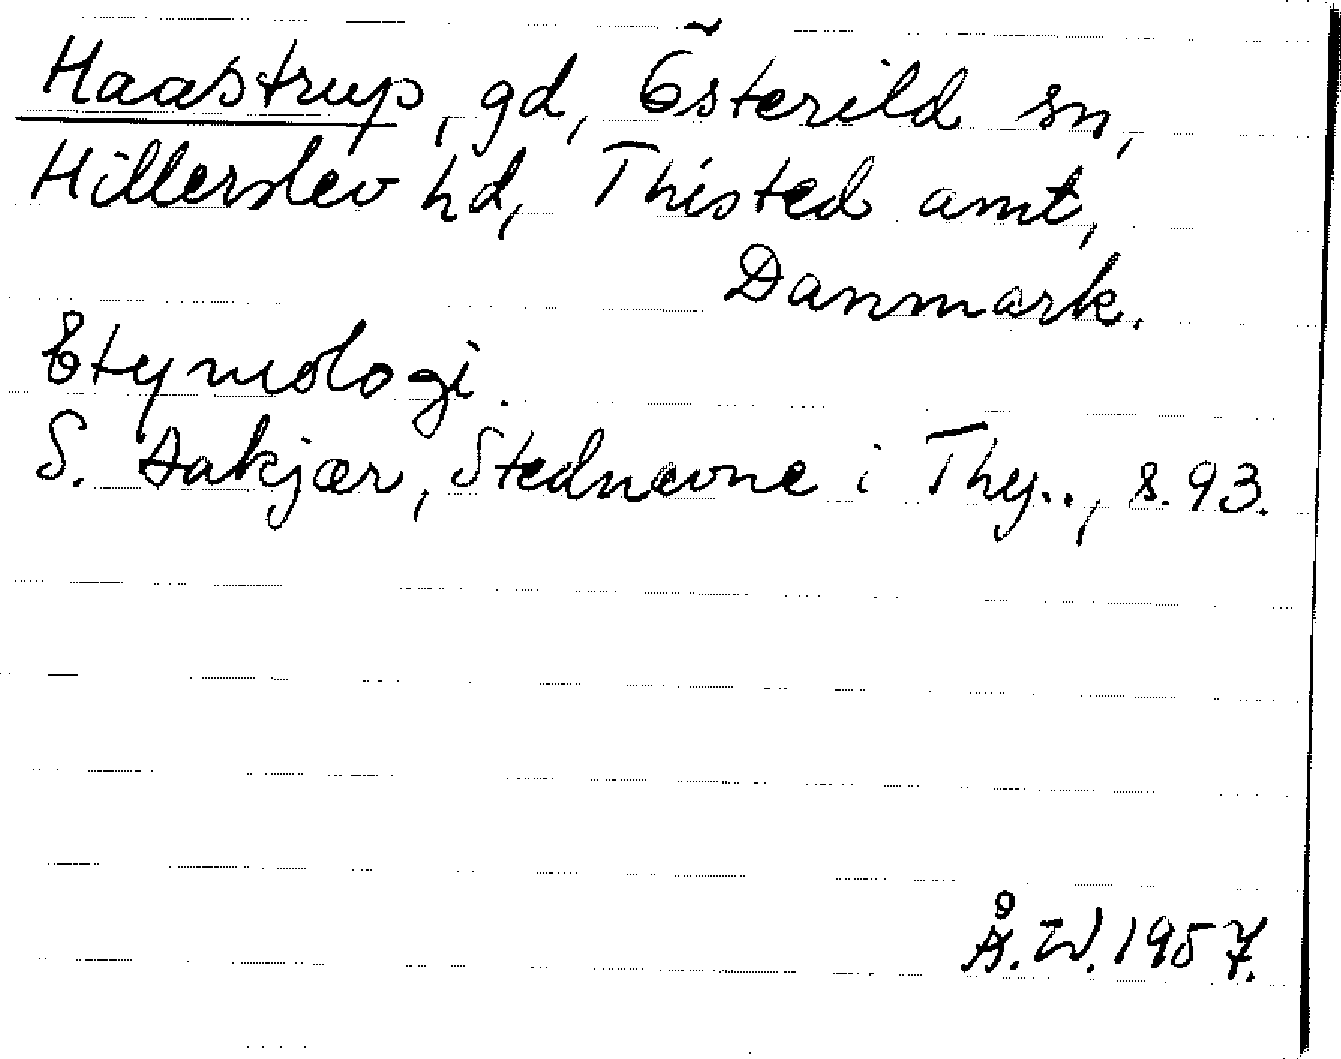 Haastrup, gd, Österild sn,
Hillerslev hd, Thisted amt,
Danmark.
Etymologi.
S. Aakjær, Stednavne i Thy.., s. 93.
Å. W. 1957.